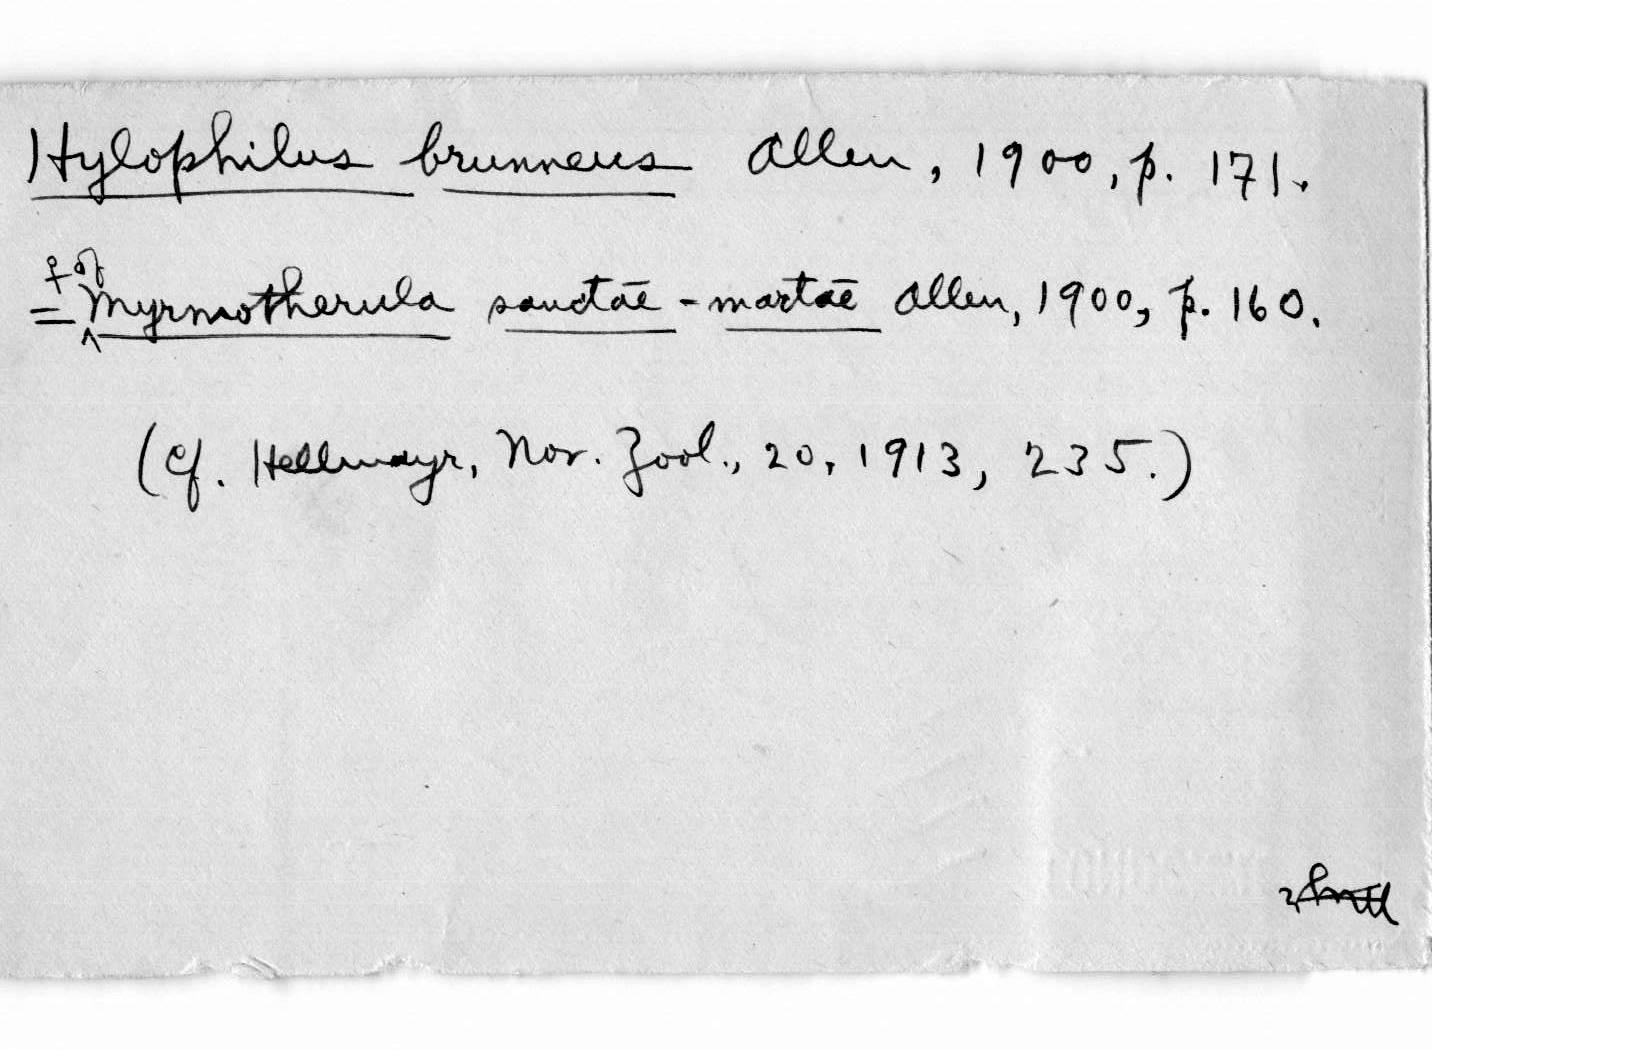 Hylophilus brunneus Allen, 1900, p. 171.
= ♀ of Myrmotherula sanctae-martae Allen, 1900, p. 160.
(Cf. Hellmayr, Nov. Zool., 20, 1913, 235.)